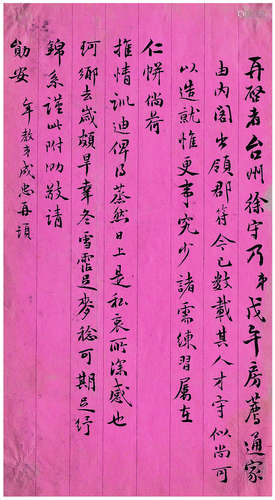 再啓者台州徐守乃弟戊午房薦通家
由內閣出領郡符今已數載其人才守似尚可
以造就惟更事究少諸需練習屬在
仁帡倘荷
推情訓迪俾得蒸然日上是私衷所深感也
珂鄉去歲頗旱幸冬雪霑足麥稔可期足紓
錦系謹此附泐敬請
勛安 年教弟成忠再頓